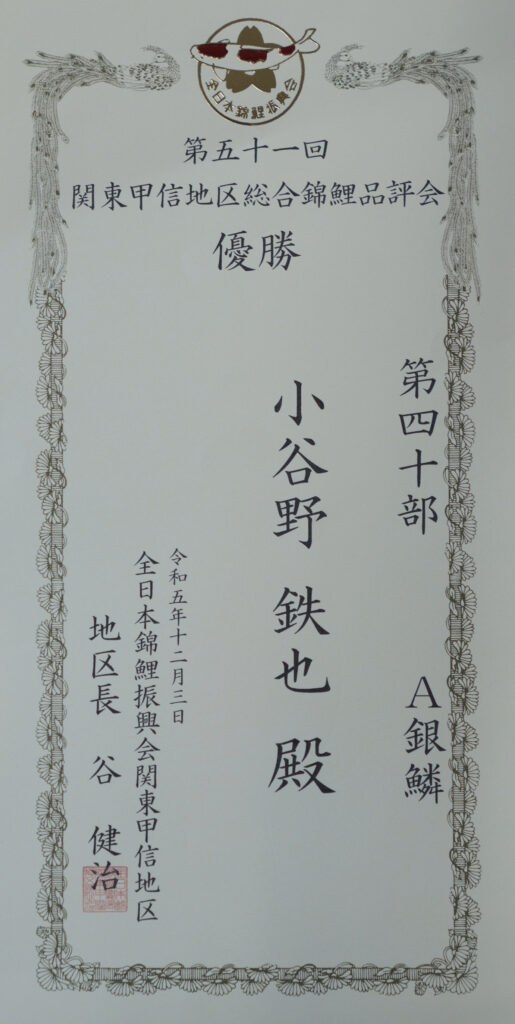 全日本錦鯉振興会
第五十一回
関東甲信地区総合錦鯉品評会
優勝
第四十部 A銀鱗
小谷野 鉄也 殿
令和五年十二月三日
全日本錦鯉振興会関東甲信地区
地区長 谷 健治